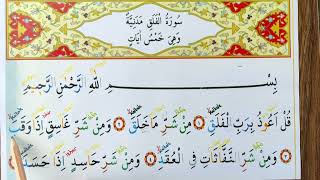 سُورَةُ الْفَلَقِ مَدَنِيَّةٌ
وَهِيَ خَمْسُ اٰيَاتٍ
بِسْمِ اللّٰهِ الرَّحْمٰنِ الرَّحِيمِ
قُلْ اَعُوذُ بِرَبِّ الْفَلَقِ ١ مِنْ شَرِّ مَا خَلَقَ ٢ وَمِنْ شَرِّ غَاسِقٍ اِذَا وَقَبَ
٣ وَمِنْ شَرِّ النَّفَّاثَاتِ فِي الْعُقَدِ ٤ وَمِنْ شَرِّ حَاسِدٍ اِذَا حَسَدَ